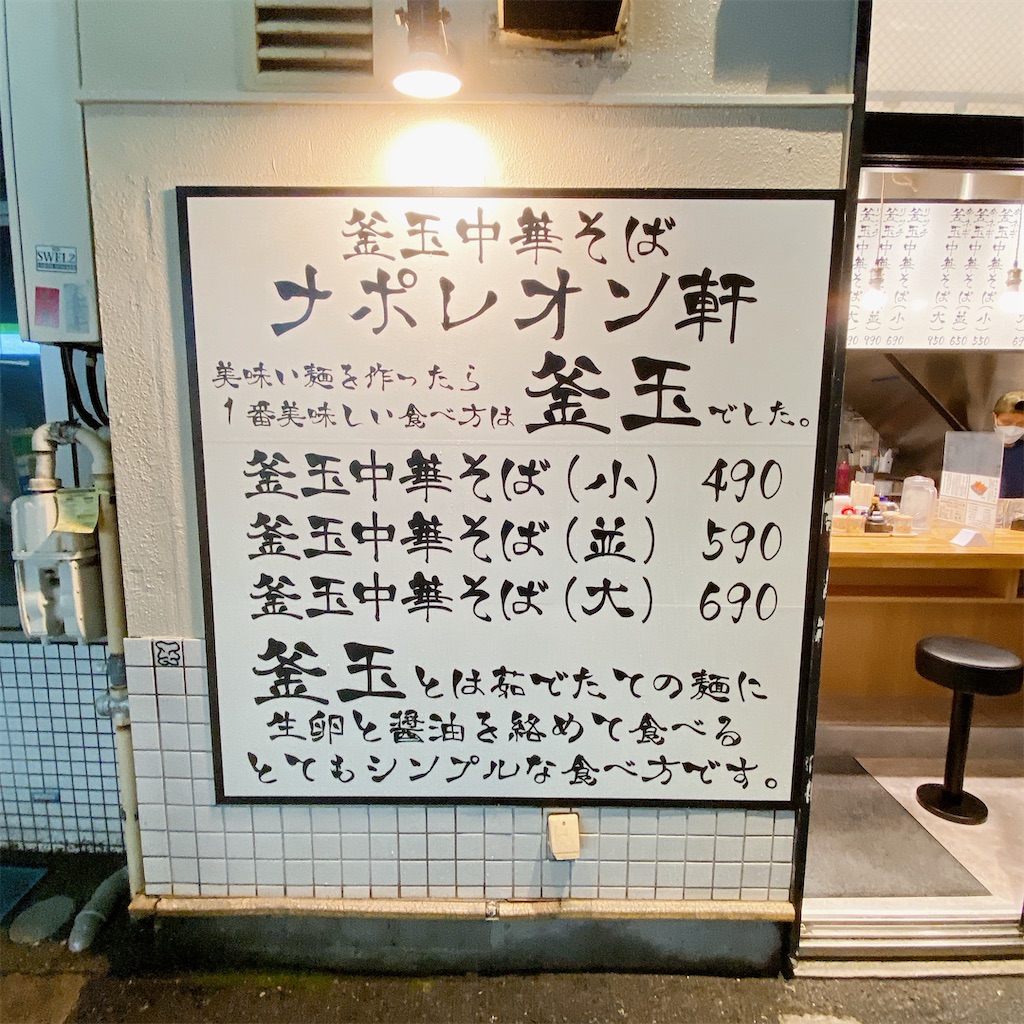 釜玉中華そば
ナポレオン軒
美味い麺を作ったら
1番美味しい食べ方は 釜玉でした。
釜玉中華そば(小) 490
釜玉中華そば(並) 590
釜玉中華そば(大) 690
釜玉とは茹でたての麺に
生卵と醤油を絡めて食べる
とてもシンプルな食べ方です。
SWEL2
釜玉中華そば(大) 990
釜玉中華そば(並) 990
釜玉中華そば(小) 690
釜玉中華そば(大) 950
釜玉中華そば(並) 650
釜玉中華そば(小) 550